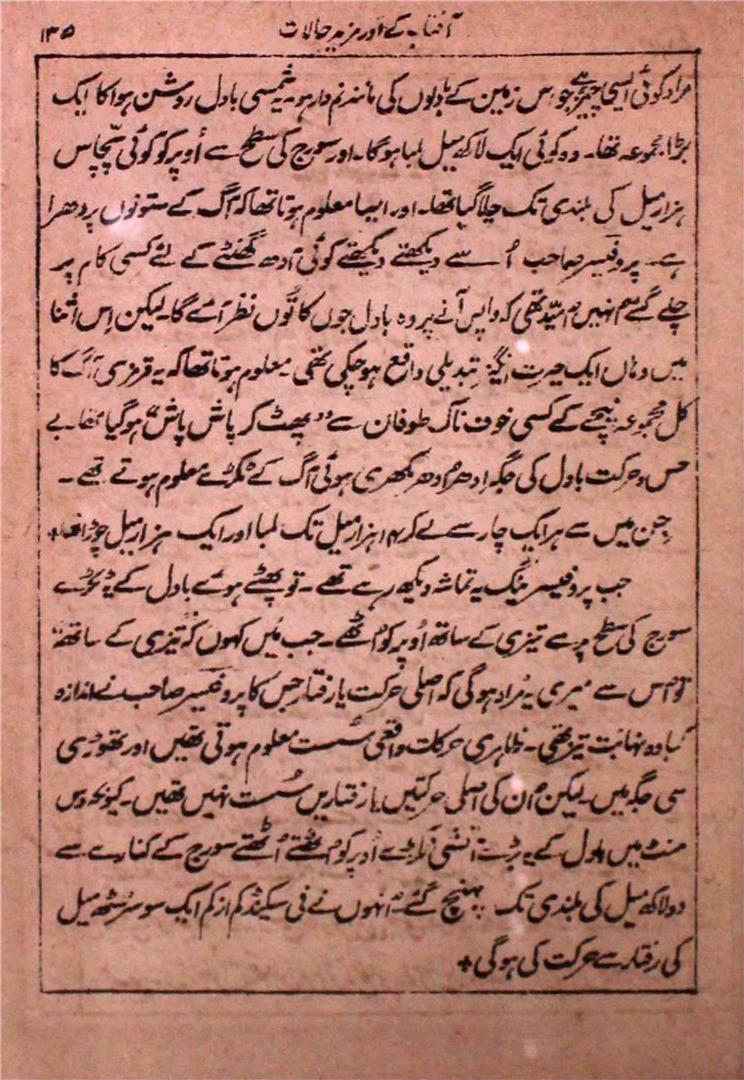 آفتاب کے اور مزید حالات ۱۳۵
مراد کوئی ایسی چیز ہے جو اس زمین کے بادلوں کی مانند نم دار ہو۔ یہ شمسی بادل روشن ہوا کا ایک
بڑا مجموعہ تھا۔ وہ کوئی ایک لاکھ میل لمبا ہوگا۔ اور سورج کی سطح سے اُوپر کو کوئی پچاس
ہزار میل کی بلندی تک چلا گیا تھا۔ اور ایسا معلوم ہوتا تھا کہ آگ کے ستونوں پر دھرا
ہے۔ پروفیسر صاحب اُسے دیکھتے دیکھتے کوئی آدھ گھنٹے کے لئے کسی کام پر
چلے گئے انہیں اُمید تھی کہ واپس آنے پر وہ بادل جوں کا تُوں نظر آئے گا۔ لیکن اِس اثنا
میں وہاں ایک حیرت انگیز تبدیلی واقع ہو چکی تھی۔ معلوم ہوتا تھا کہ یہ قرمزی آگ کا
کل مجموعہ نیچے کے کسی خوف ناک طوفان سے "پھٹ کر پاش پاش" ہو گیا تھا۔ بے
حس و حرکت بادل کی جگہ اِدھر اُدھر بکھری ہوئی آگ کے ٹکڑے معلوم ہوتے تھے۔
جِن میں سے ہر ایک چار سے لے کر ۱۴ ہزار میل تک لمبا اور ایک ہزار میل چوڑا تھا+
جب پروفیسر ینگ یہ تماشہ دیکھ رہے تھے۔ تو پھٹے ہوئے بادل کے یہ ٹکڑے
سورج کی سطح پر سے تیزی کے ساتھ اُوپر کو اُٹھے۔ جب مَیں کہوں کہ "تیزی کے ساتھ"
تو اس سے میری یہ مُراد ہوگی کہ اصلی حرکت یا رفتار جس کا پروفیسر صاحب نے اندازہ
کیا وہ نہایت تیز تھی۔ ظاہری حرکات واقعی سُست معلوم ہوتی تھیں اور تھوڑی
سی جگہ میں۔ لیکن اُن کی اصلی حرکتیں یا رفتاریں سُست نہیں تھیں۔ کیونکہ دس
منٹ میں بادل کے یہ بڑے آتشی ٹکڑے اُوپر کو اُٹھتے اُٹھتے سورج کے کنارے سے
دو لاکھ میل کی بلندی تک پہنچ گئے۔ اُنہوں نے فی سیکنڈ کم از کم ایک سو سڑسٹھ میل
کی رفتار سے حرکت کی ہوگی+